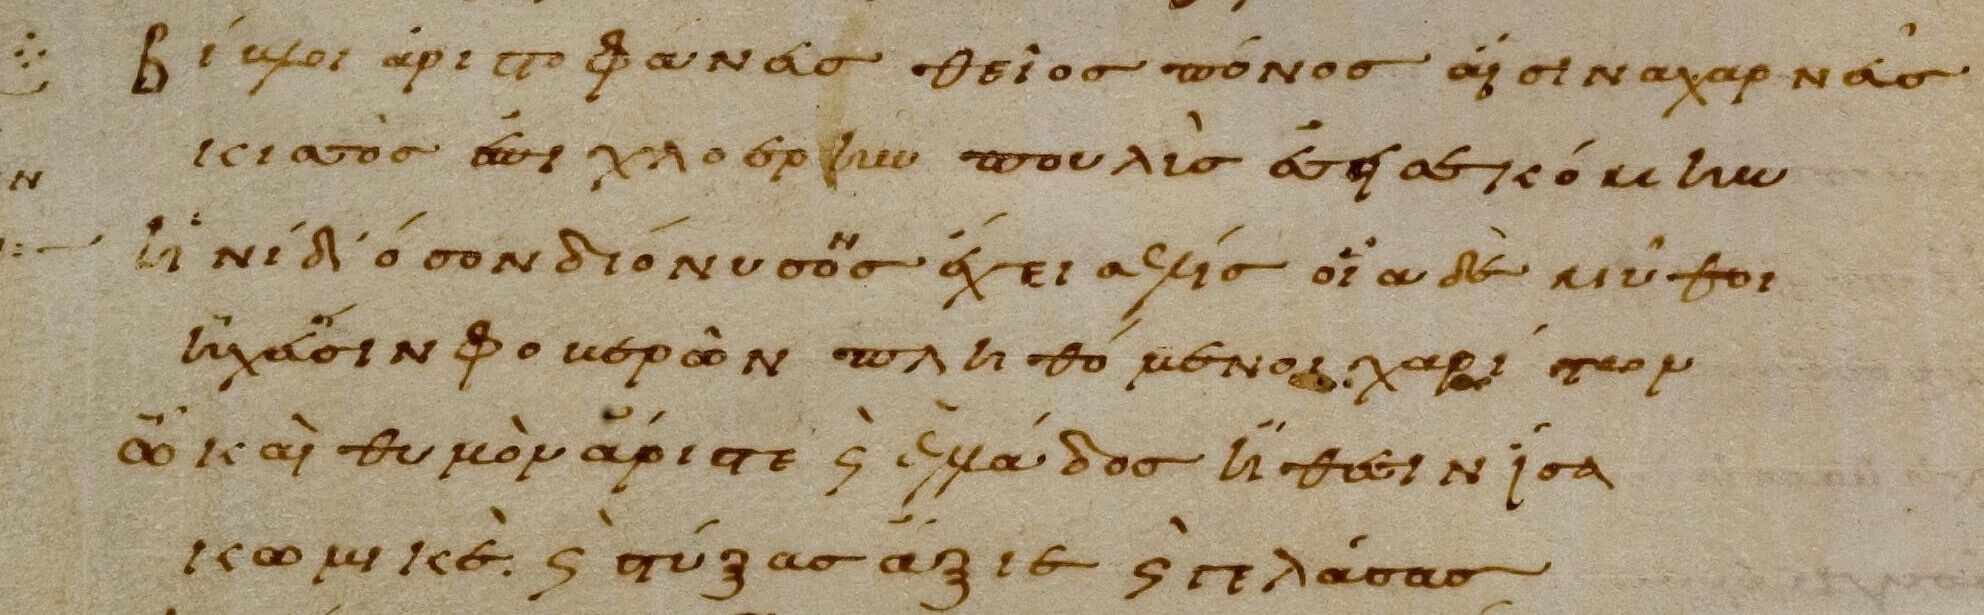 Βίβλοι ἀριστοφάνευς θεῖος πόνος αἷσιν ἀχαρνεὺς
κισσὸς ἐπι χλοερὴν πουλὺς ἔσεισε κόμην
ἠνίδ' ὅσον διόνυσον ἔχει σελίς οἷα δὲ μῦθοι
ἠχεῦσιν φοβερῶν πληθόμενοι χαρίτων
ὦ καὶ θυμὸν ἄριστε ϗ ἑλλάδος ἤθεσιν ἶσα
κωμικέ. ϗ στύξας ἄξιε ϗ γελάσας